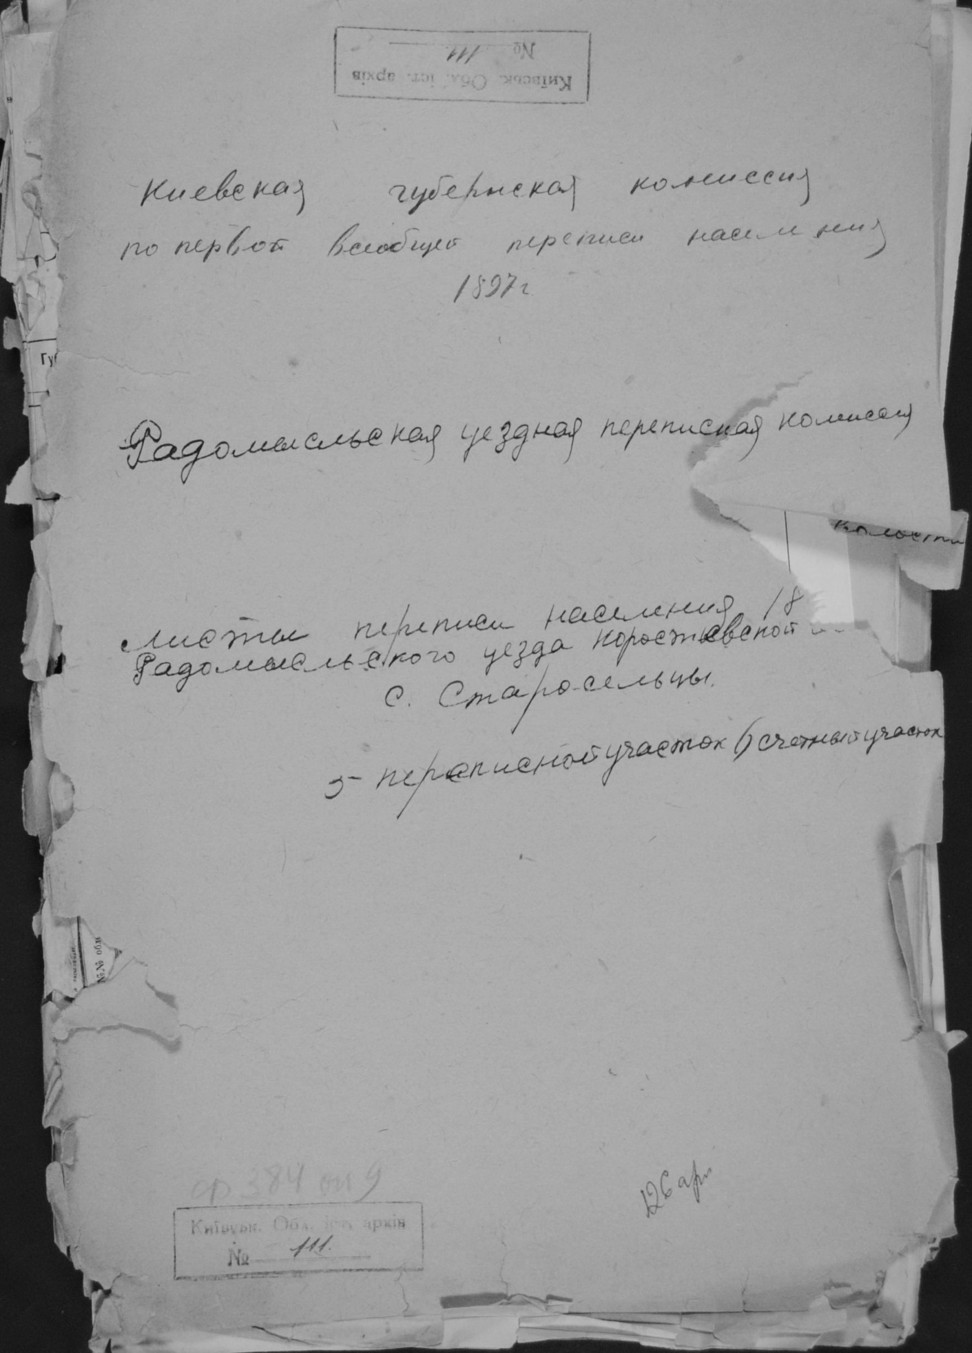 Київськ. Обл. іст. архів
№ 111
Киевская губернская комиссия
по первой всеобщей переписи населения
1897г
Радомысльская уездная переписная комиссия
Листы переписи населения 18
Радомысльского уезда Коростышевской
с. Старосельцы.
5 переписной участок счетный участок
ф 384 оп 9
Київськ. Обл. іст. архів
№ 111.
126 арк
№№ обл